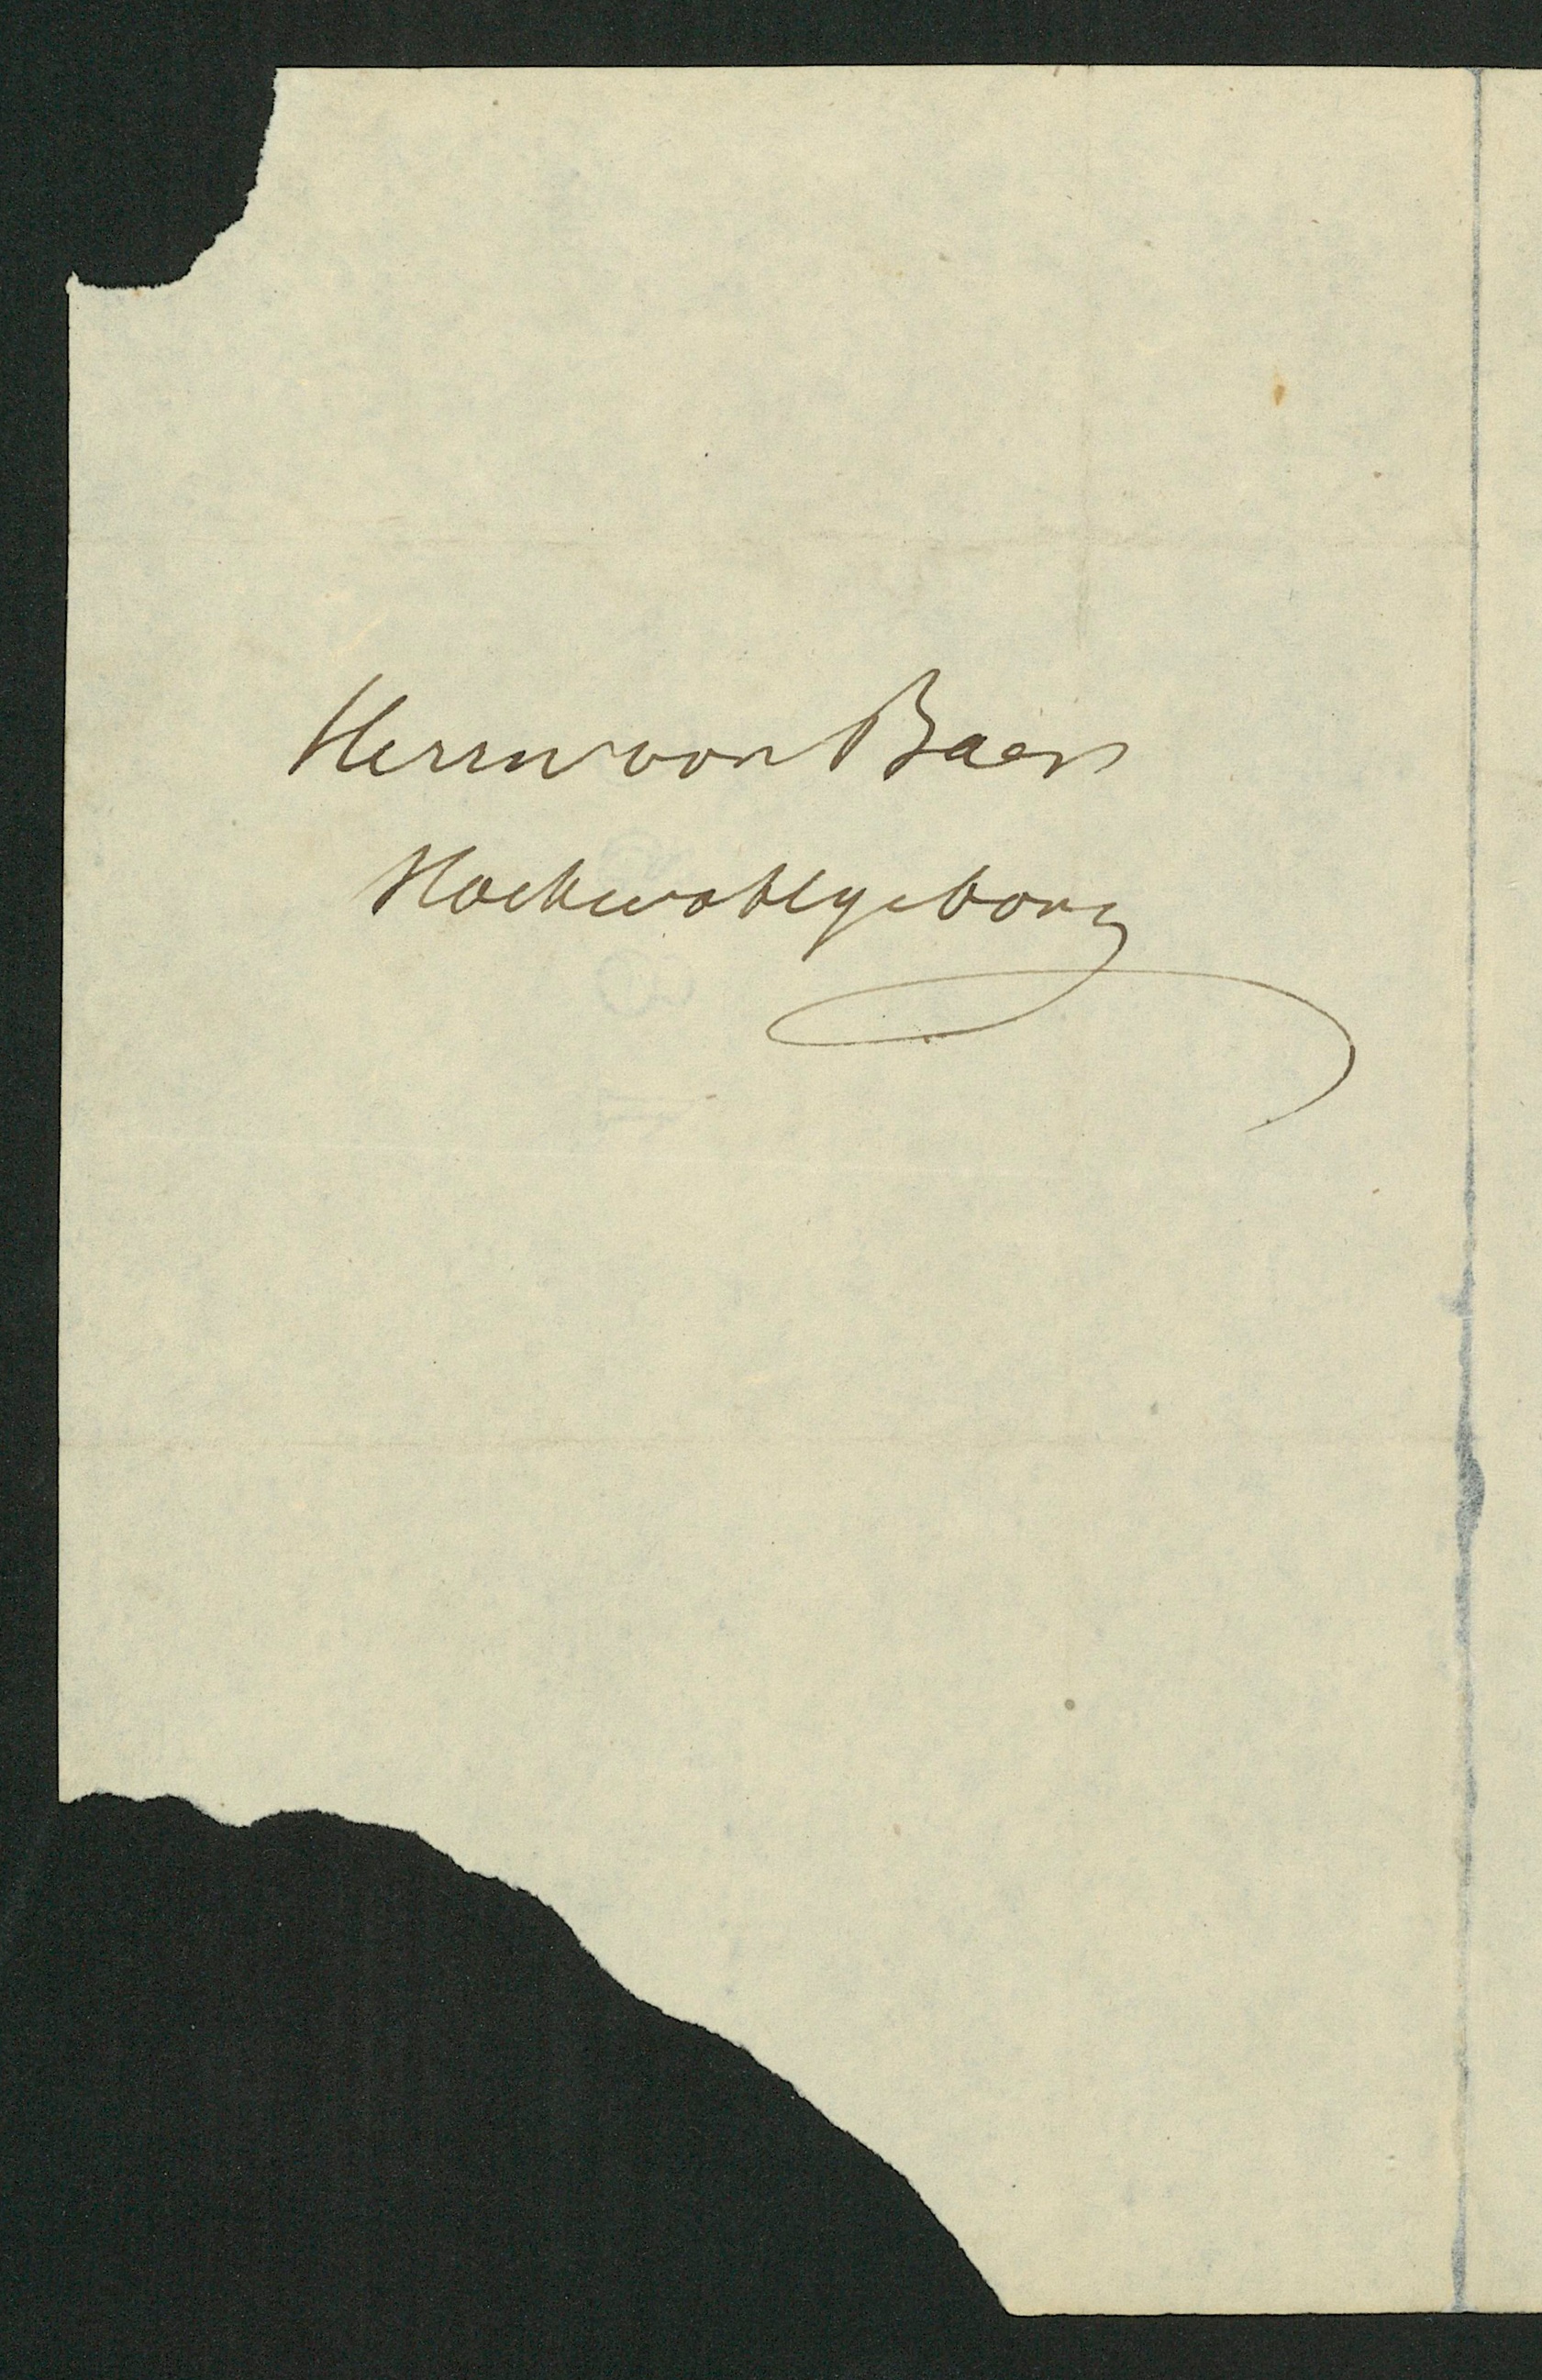 Herrn von Baer
Hochwohlgeborn